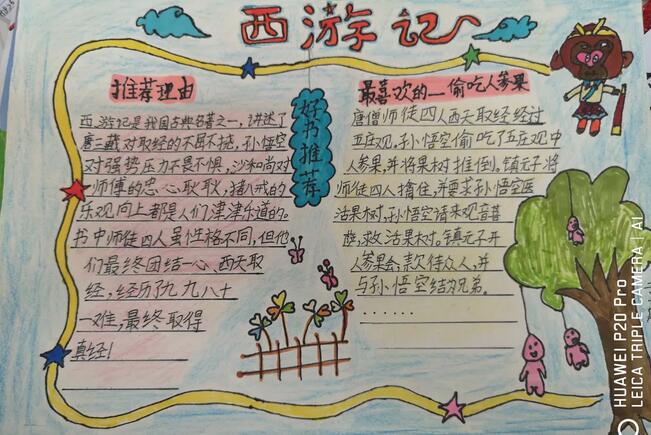 西游记
推荐理由
西游记是我国古典名著之一，讲述了
唐三藏对取经的不屈不挠，孙悟空
对强势压力不畏不惧，沙和尚对
师傅的忠心耿耿，猪八戒的
乐观向上都是人们津津乐道的。
书中师徒四人虽性格不同，但他
们最终团结一心、西天取
经，经历了九九八十
一难，最终取得
真经！
好书推荐
最喜欢的一偷吃人参果
唐僧师徒四人西天取经经过
五庄观，孙悟空偷吃了五庄观中
人参果，并将果树推倒。镇元子将
师徒四人擒住，并要求孙悟空医
活果树，孙悟空请来观音菩
萨，救活果树。镇元子开
人参果会，款待众人，并
与孙悟空结为兄弟。
......
HUAWEI P20 Pro
LEICA TRIPLE CAMERA | AI